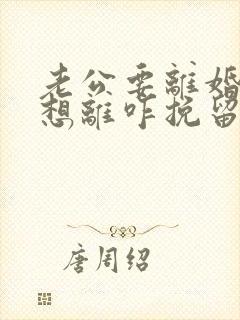 老公要離婚
想離咋挽留
唐周绍